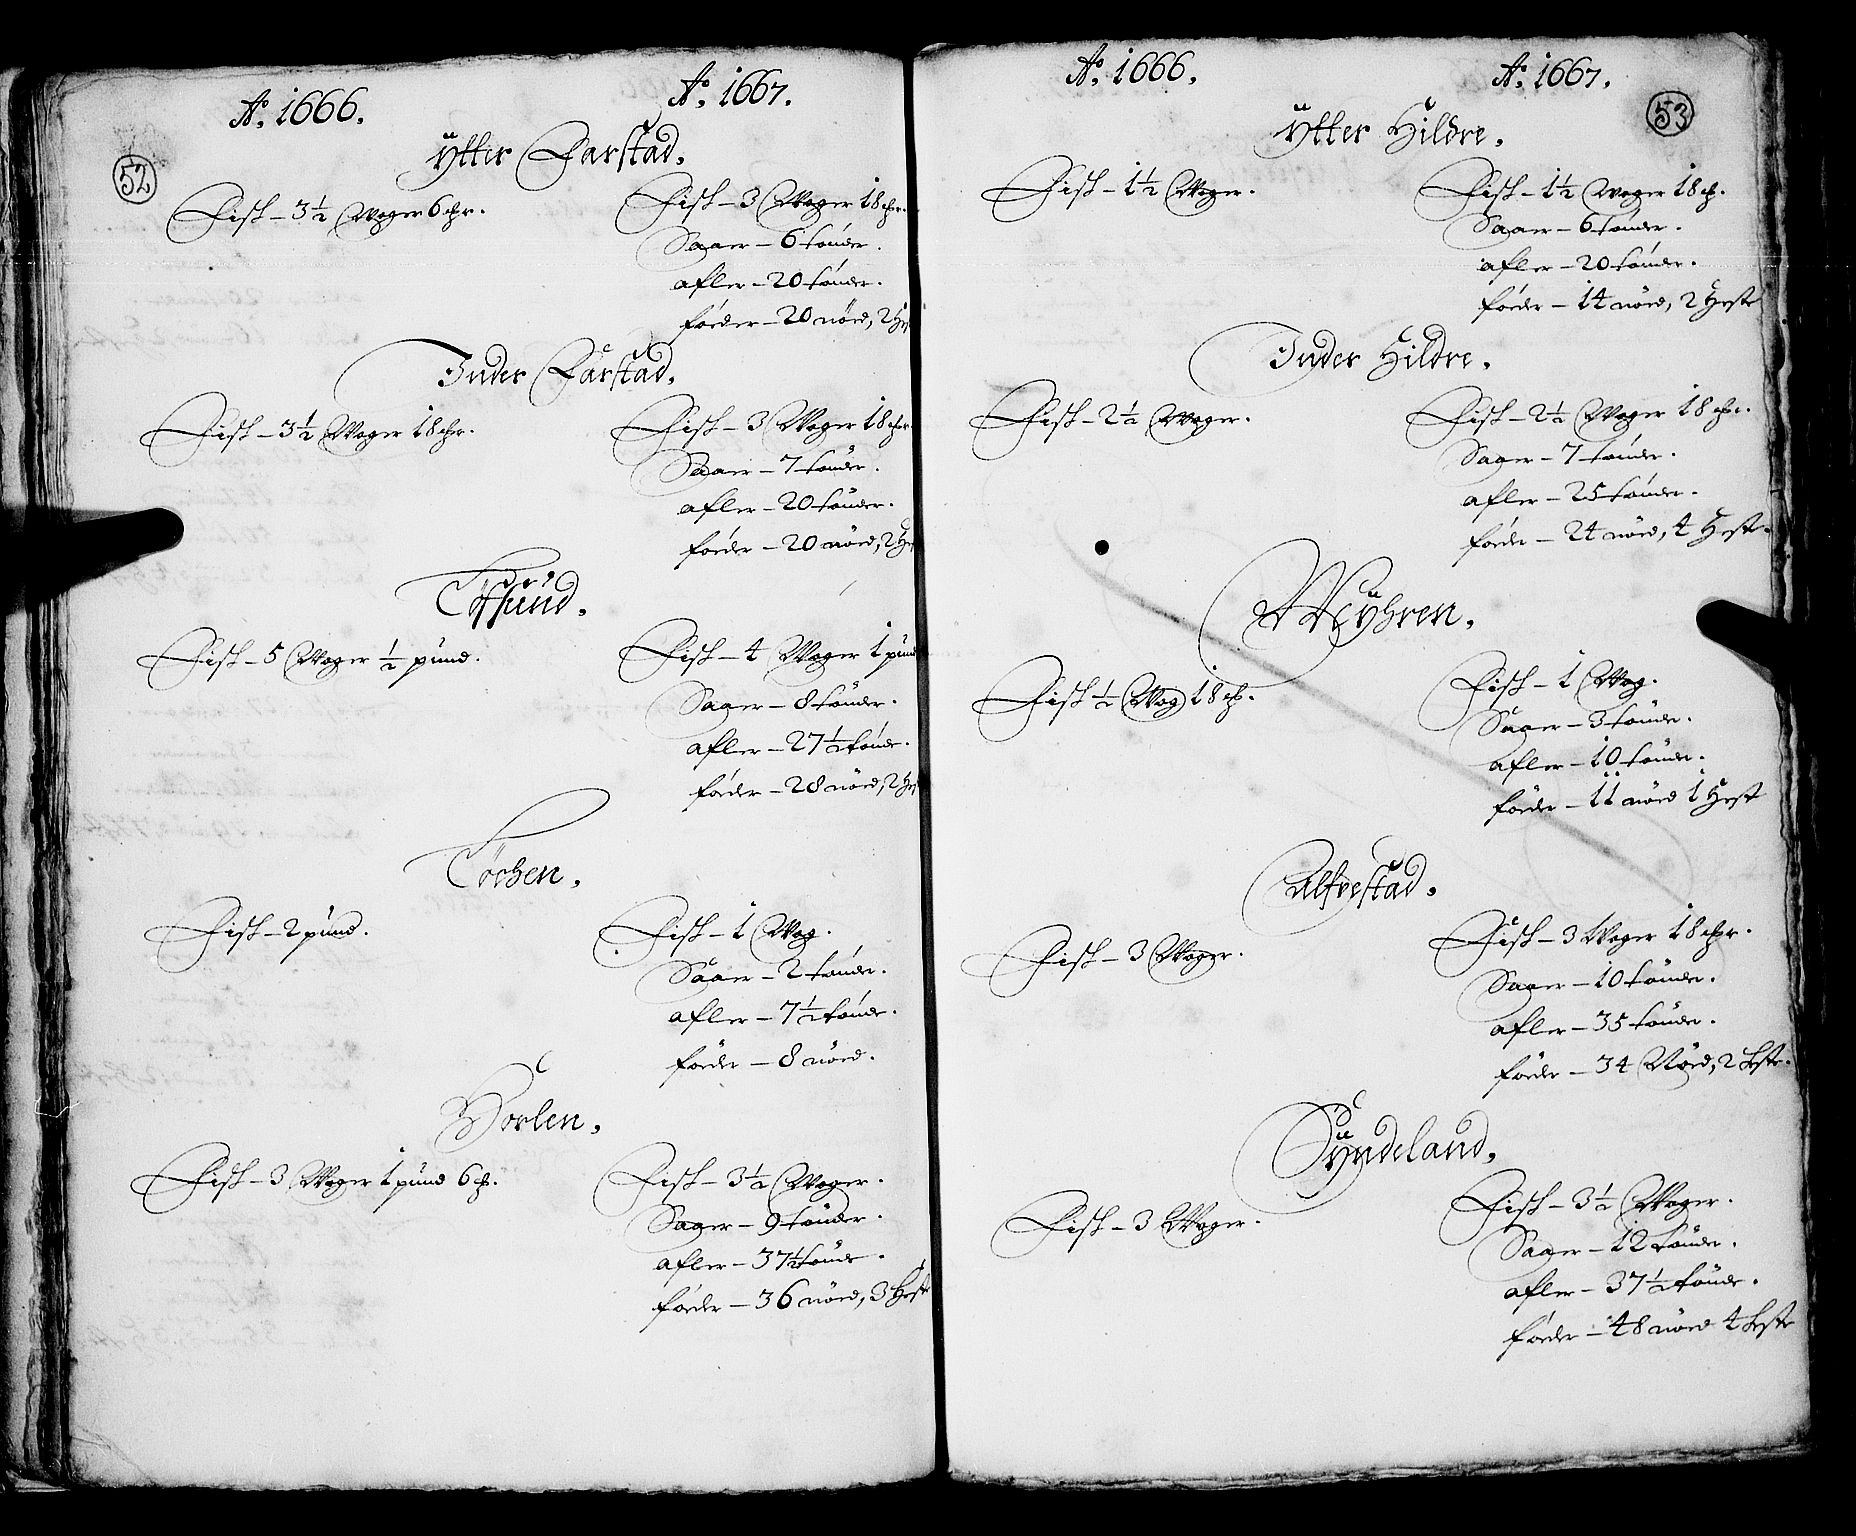 52
Aº. 1666. Aº. 1667.
Ÿtter Farstad.
Fisk – 3½ Woger 6 chr. Fisk – 3 Woger 18 chr.
Saaer – 6 tønder.
afler – 20 tønder.
føeder – 20 nöed, 2 Hes
Inder Farstad.
Fisk – 3½ Woger 18 chr. Fisk – 3 Woger 18 chr.
Saaer – 7 tønder.
afler – 20 tønder.
føeder – 20 nöed, 2 He
Fisk – 5 Woger ½ pund. Fisk – 4 Woger 1 pund
Saaer – 8 tønder.
afler – 27½ tønde.
føeder – 28 nöed, 2 Hes
Töchen.
Fisk – 2 pund. Fisk – 1 Wog.
Saaer – 2 tønder.
afler – 7½ tønde.
føder – 8 nöed.
Horlen.
Fisk – 3 Woger 1 pund 6 ch. Fisk – 3½ Woger.
Saaer – 9 tønder.
afler – 37½ tønde.
føeder – 36 nöed, 3 Heste
53
Aº. 1666. Aº. 1667.
Ÿtter Hildre.
Fisk – 1½ Woger. Fisk – 1½ Woger 18 ch.
Saaer – 6 tønder.
afler – 20 tønder.
føder – 14 nöed, 2 Heste
Inder Hildre.
Fisk – 2½ Woger. Fisk – 2½ Woger 18 chr.
Saaer – 7 tønder.
afler – 25 tønder.
føder – 24 nöed, 4 Heste.
Mÿhren.
Fisk ½ Wog 18 ch. Fisk – 1 Wog.
Saaer – 3 tønde.
afler – 10 tønde.
føder – 11 nöed 1 Hest
Alfvestad.
Fisk – 3 Woger. Fisk – 3 Woger 18 chr.
Saaer – 10 tønder.
afler – 35 tønder.
føder – 34 Nöed, 2 Heste.
Sÿndeland.
Fisk – 3 Woger. Fisk – 3½ Woger.
Saaer – 12 tønder.
afler – 37½ tønde.
føeder – 48 nöed 4 Heste